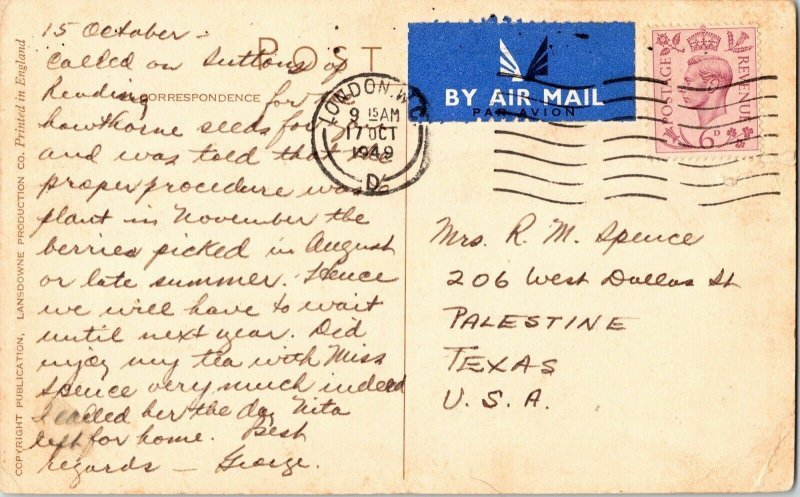 COPYRIGHT PUBLICATION, LANSDOWNE PRODUCTION CO. Printed in England
POST
CORRESPONDENCE
15 October –
Called on Suttons of
Reading for the
hawthorne seeds for
and was told that the
proper procedure was to
plant in November the
berries picked in August
or late summer. Hence
we will have to wait
until next year. Did
enjoy my tea with Miss
Spence very much indeed
I called her the day Nita
left for home. Best
regards — George.
LONDON. W.C.
9 15 AM
17 OCT
1949
D
BY AIR MAIL
PAR AVION
POSTAGE
REVENUE
6D
Mrs. R. M. Spence
206 West Dallas St
PALESTINE
TEXAS
U.S.A.